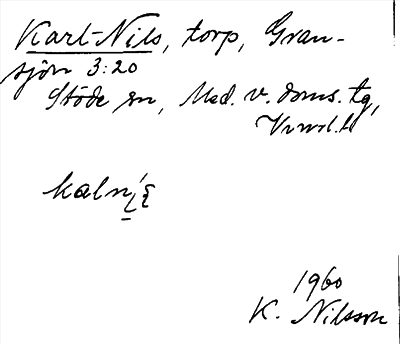 Karl-Nils, torp, Gran-
sjön 3:20
Stöde sn, Med. v. doms. tg,
Vrnrl. l
kaln
1960
K. Nilsson